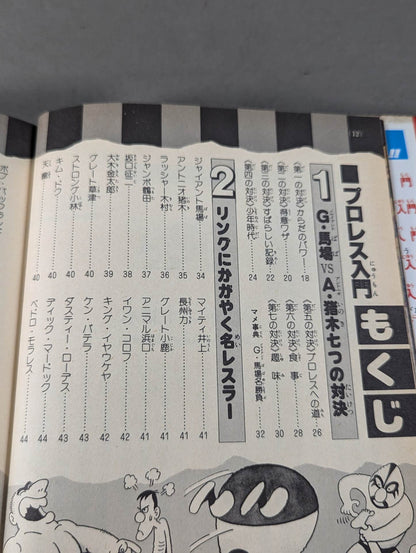 ■プロレス入門
もくじ
1 G・馬場VSA・猪木七つの対決
〈第一の対決〉からだのパワー…18
〈第二の対決〉得意ワザ…20
〈第三の対決〉すばらしい記録…22
〈第四の対決〉少年時代…24
〈第五の対決〉プロレスへの道…26
〈第六の対決〉食事…28
〈第七の対決〉趣味…30
マメ事典 G・馬場名勝負…32
2 リンクにかがやく名レスラー
ジャイアント馬場…34
アントニオ猪木…35
ラッシャー木村…36
ジャンボ鶴田…37
坂口征二…38
大木金太郎…39
グレート草津…39
ストロング小林…40
キム・ドク…40
天龍…40
マイティ井上…41
長州力…41
グレート小鹿…41
アニマル浜口…41
イワン・コロフ…42
キング・イヤウケヤ…42
ケン・パテラ…42
ダスティー・ローデス…43
ディック・マードック…44
ペドロ・モラレス…44